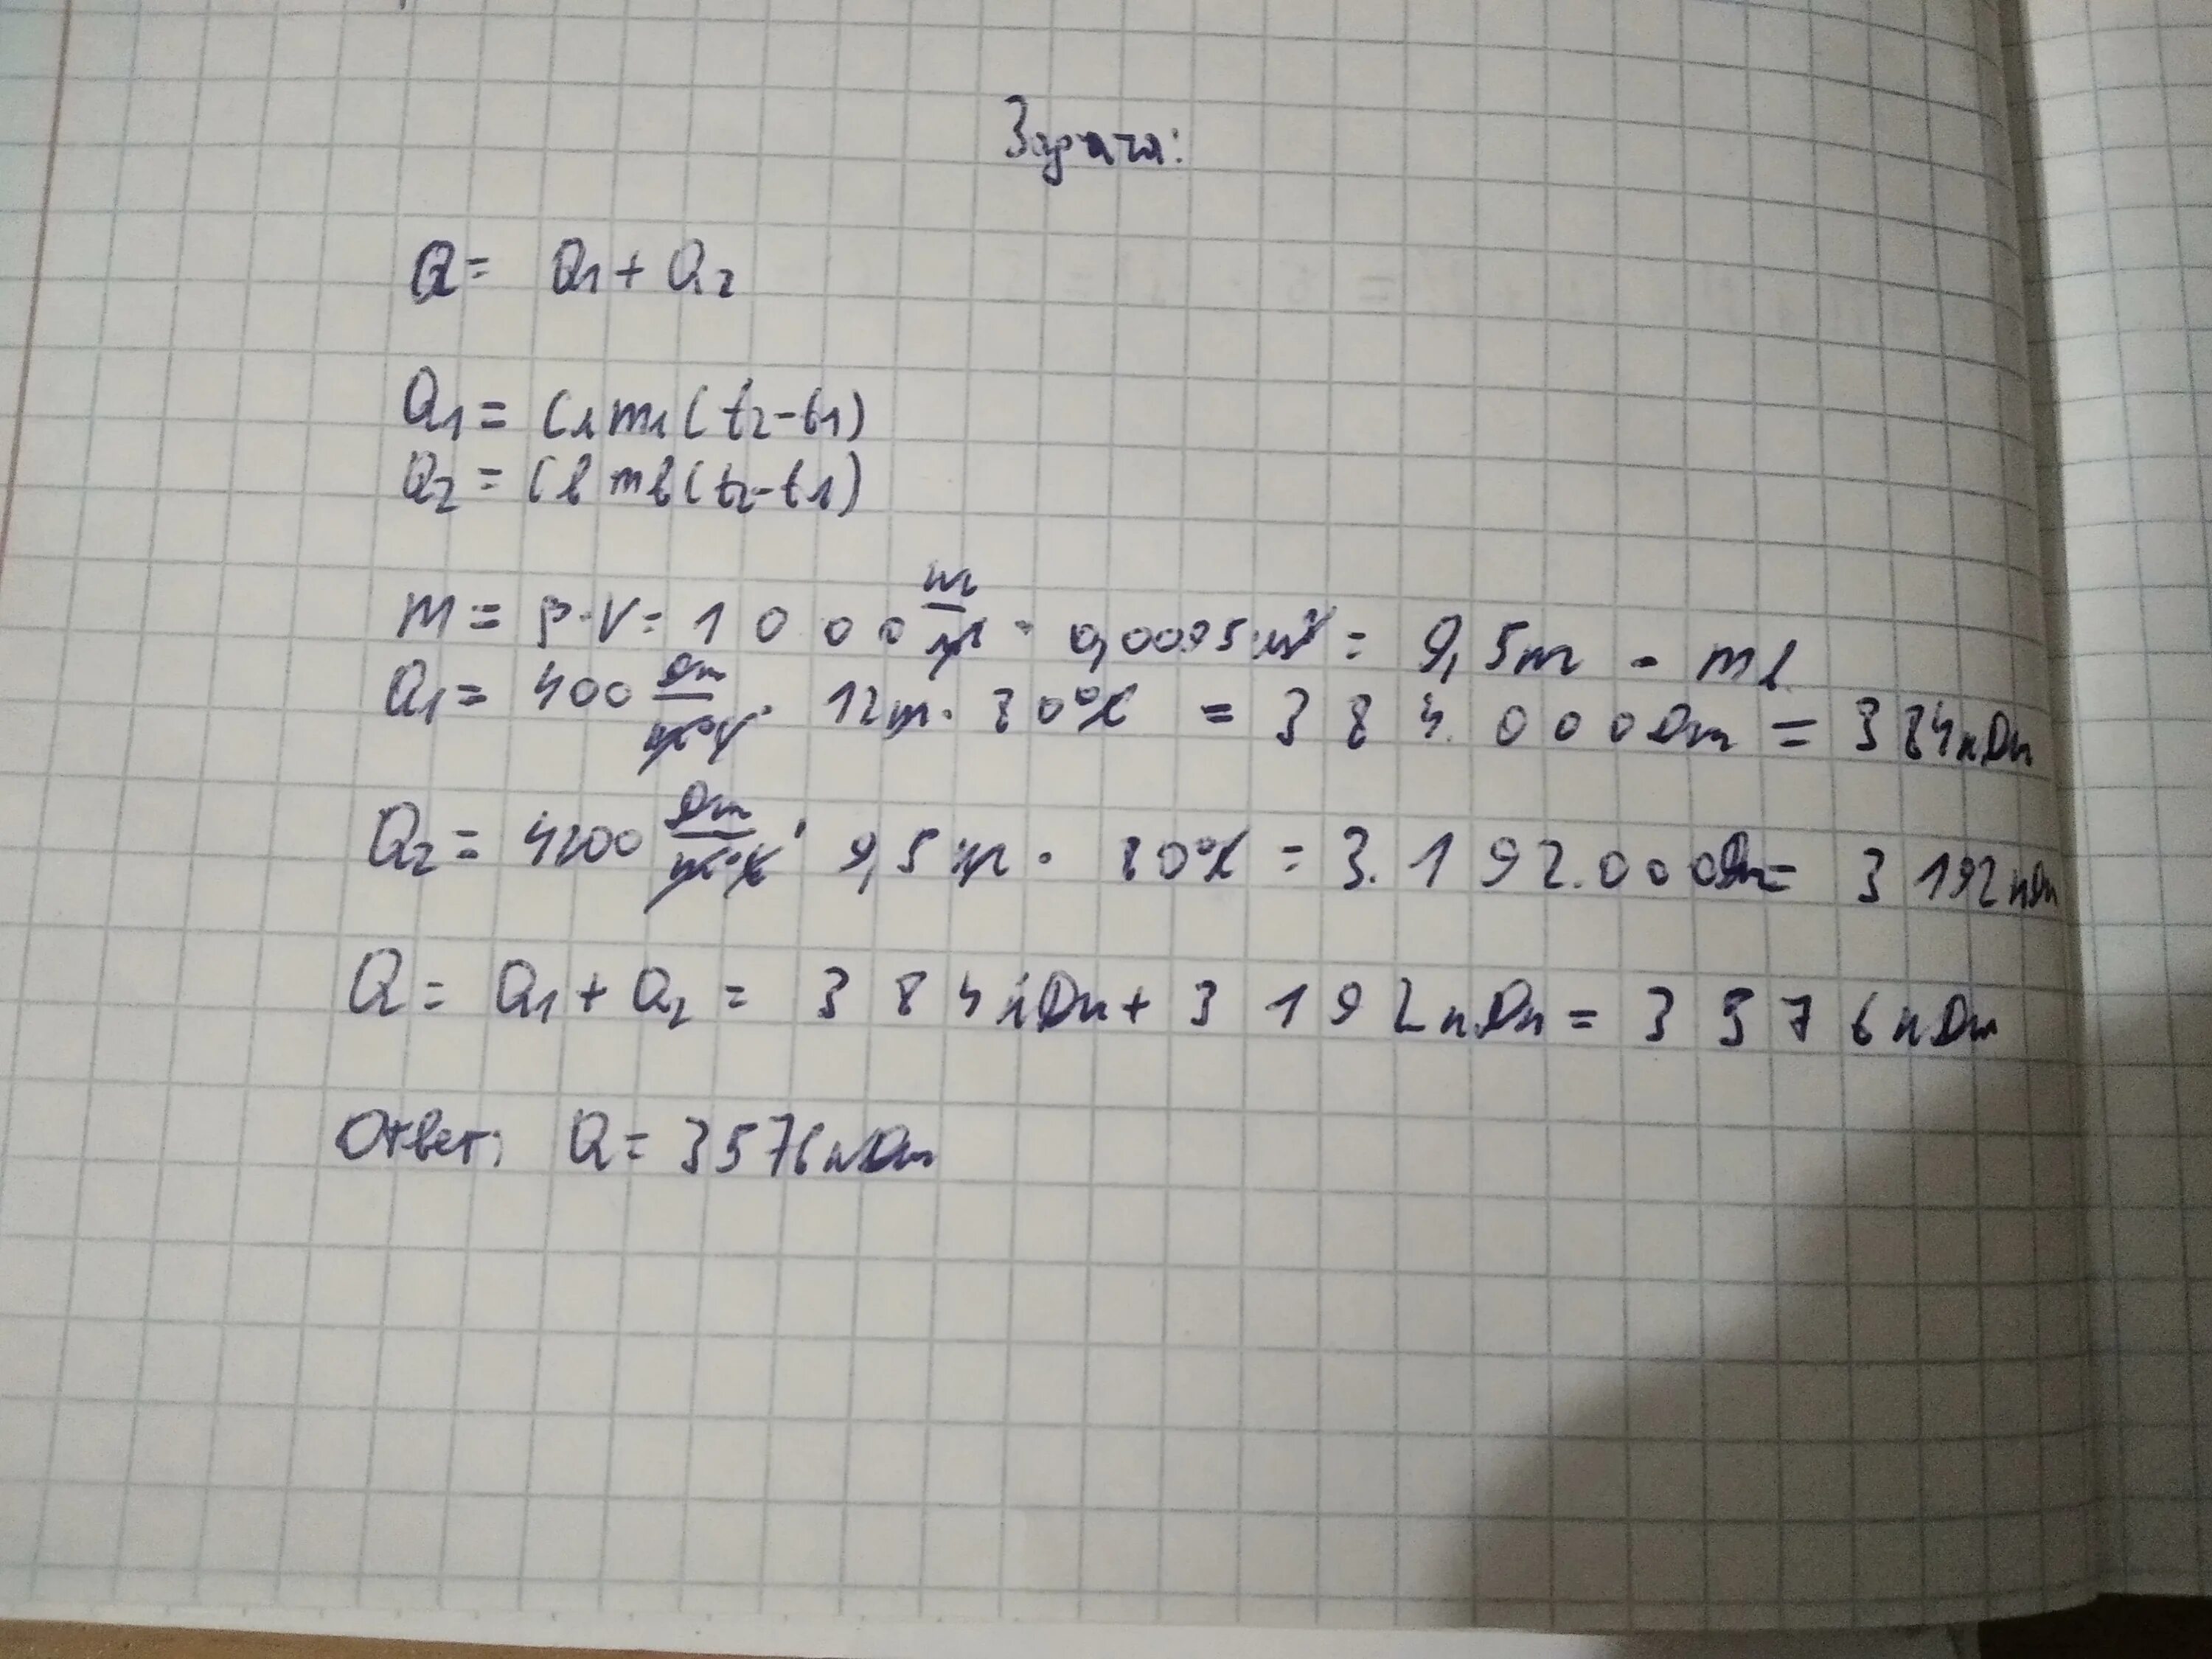 Задача:
Q = Q₁ + Q₂
Q₁ = C₁m₁(t₂-t₁)
Q₂ = Cв mв(t₂-t₁)
m = ρ·V = 1000 кг/м³ · 0,0095 м³ = 9,5 кг - mв
Q₁ = 400 Дж/кг·°C · 12кг · 80°C = 384.000Дж = 384кДж
Q₂ = 4200 Дж/кг·°C · 9,5 кг · 80°C = 3.192.000Дж = 3192кДж
Q = Q₁ + Q₂ = 384кДж + 3192кДж = 3576кДж
Ответ: Q = 3576кДж